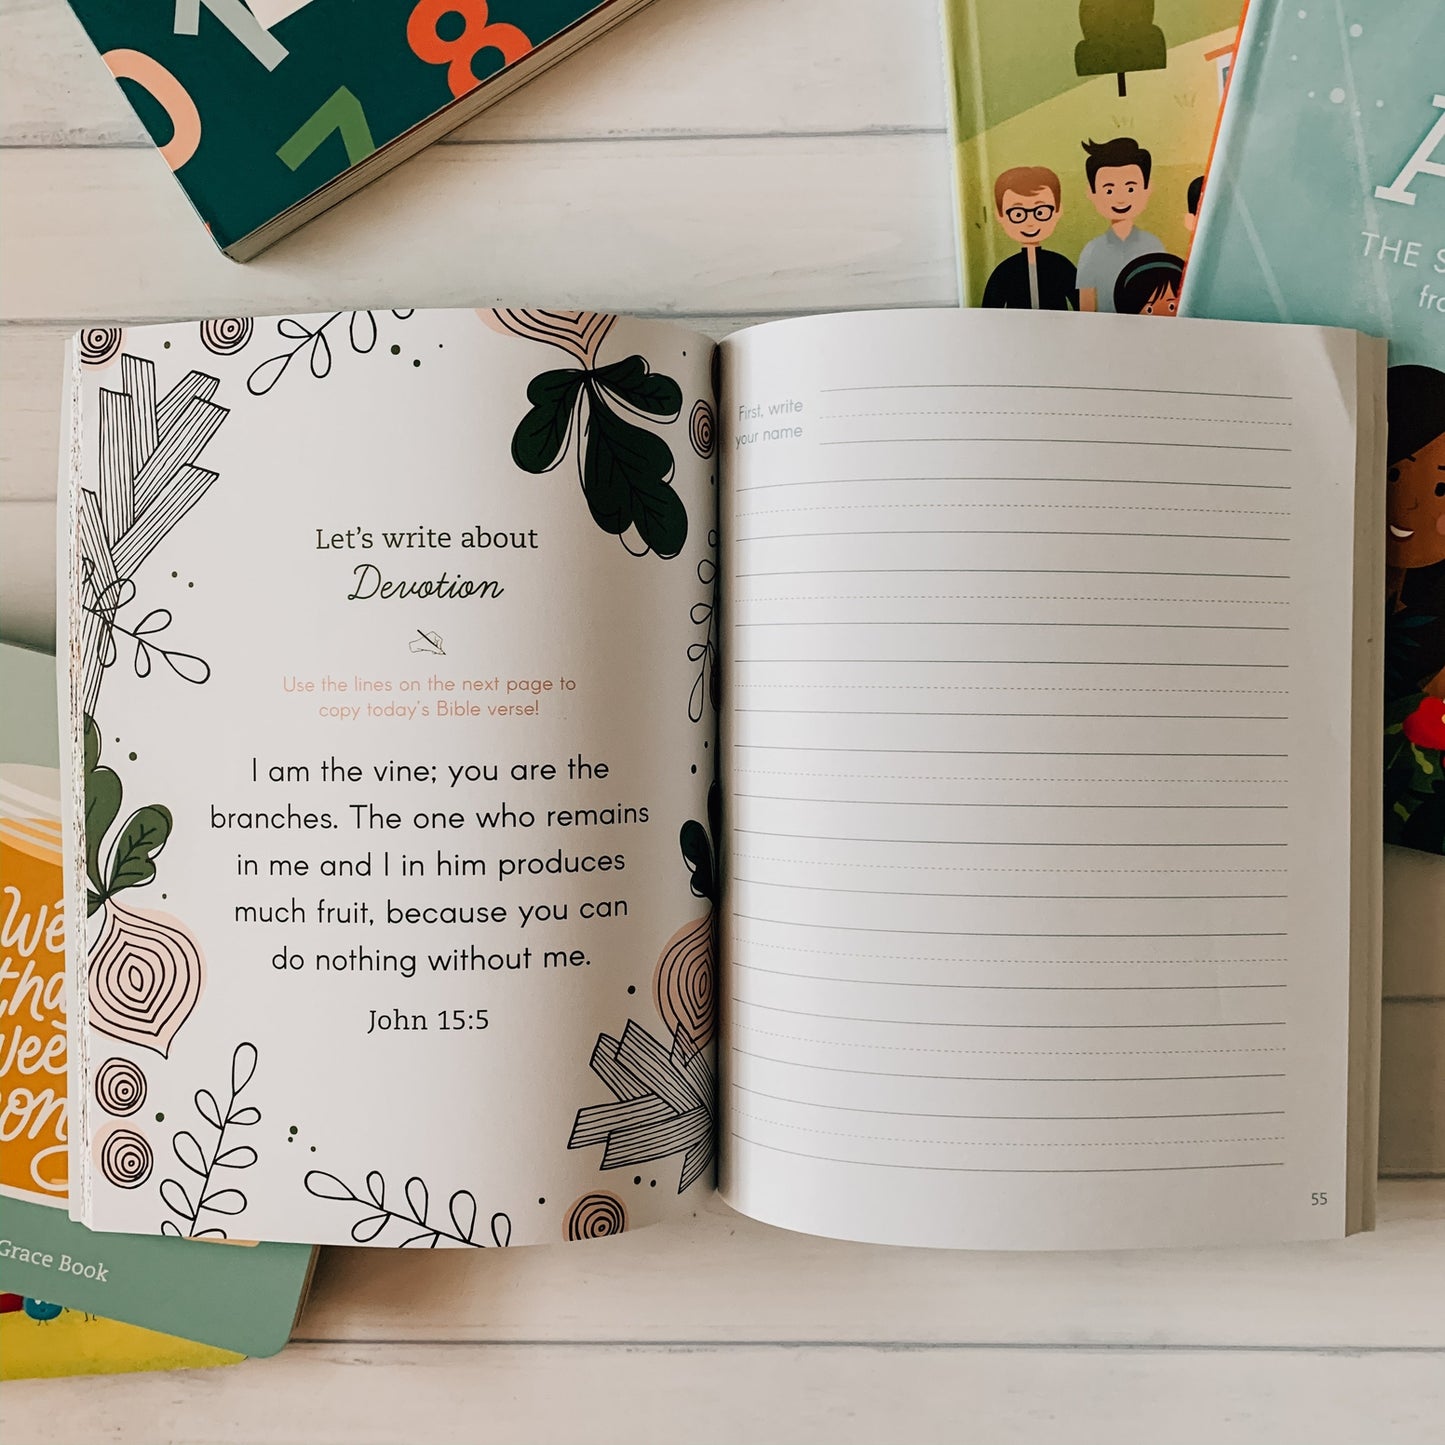 0 1 7 8
THE
Let's write about
Devotion
Use the lines on the next page to
copy today's Bible verse!
I am the vine; you are the
branches. The one who remains
in me and I in him produces
much fruit, because you can
do nothing without me.
John 15:5
First, write
your name
55
Grace Book